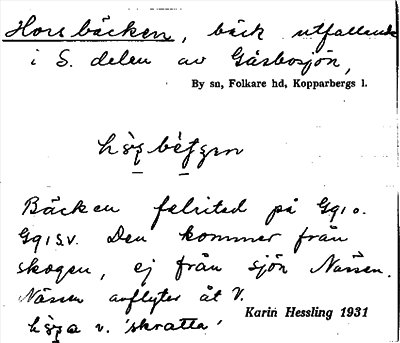 Horsbäcken, bäck utfallande
i S. delen av Gåsbosjön,
By sn, Folkare hd, Kopparbergs l.
Bäcken felritad på Gg10.
Gg1S.V. Den kommer från
skogen, ej från sjön Nässen.
Nässen avflyter åt V.
v. 'skratta'
Karin Hessling 1931